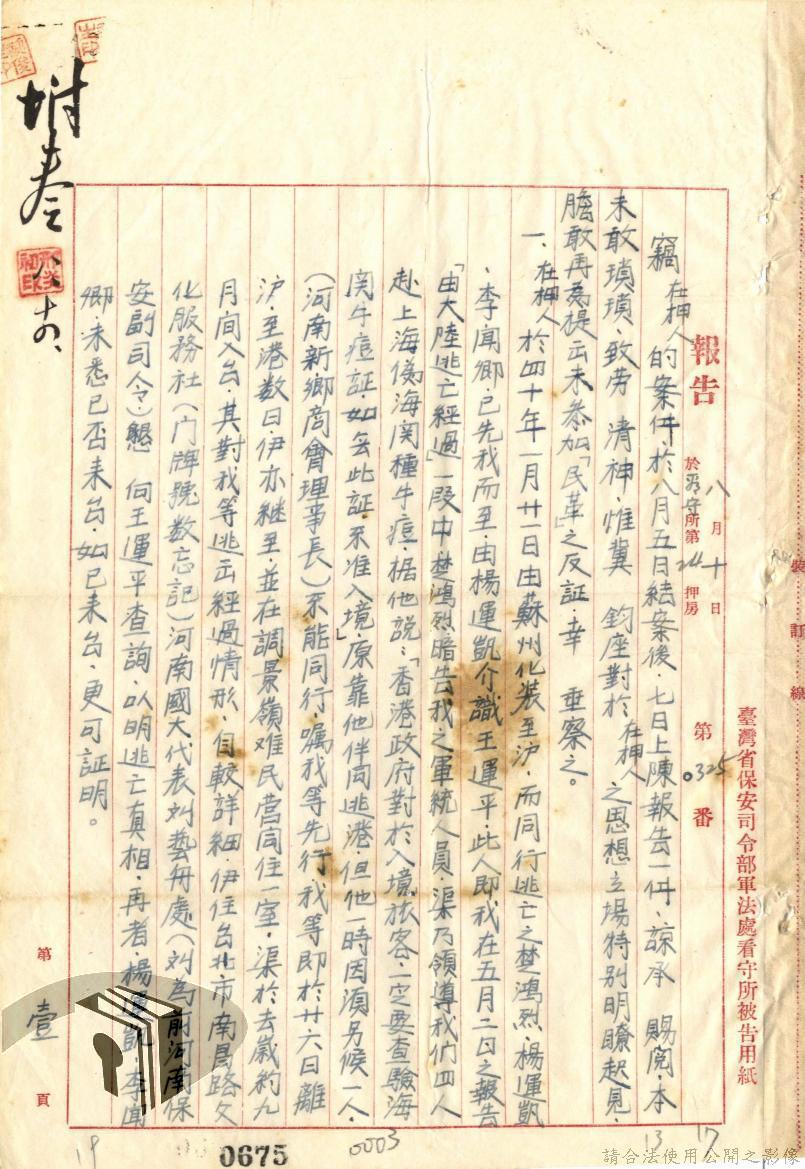 臺灣省保安司令部軍法處看守所被告用紙
裝訂線
報告
八月十日
於看守所第24押房
第0325番
竊在押人的案件於八月五日結案後、七日上陳報告一件、諒承 賜閱、本
未敢瑣瑣、致勞 清神、惟冀 鈞座對於在押人之思想立場特別明瞭起見、
膽敢再為提出未參加「民革」之反証、幸 垂察之。
一、在押人於四十年一月廿一日由蘇州化裝至沪、而同行逃亡之楚鴻烈、楊運凱
、李聞卿、已先我而至、由楊運凱介識王運平、此人即我在五月二日之報告
「由大陸逃亡經過」一段中楚鴻烈暗告我之軍統人員、渠乃領導我们四人
赴上海偽海関種牛痘、据他說：「香港政府對於入境旅客、一定要查驗海
関牛痘証、如無此証不准入境」、原靠他伴同逃港、但他一時因須另候一人、
（河南新鄉商會理事長）不能同行、嘱我等先行、我等即於廿六日離
沪、至港数日、伊亦继至、並在調景嶺难民营同住一室、渠於去歲約九
月間入台、其對我等逃出經過情形、自較詳細、伊住台北市南昌路文
化服務社（门牌號数忘記）河南國大代表刘藝舟處（刘為前河南保
安副司令、）懇 向王運平查詢、以明逃亡真相、再者、楊運凱、李聞
卿、未悉已否来台、如已来台、更可証明。
附卷
八、十四、
第壹頁
0675
0003
19
13
17
請合法使用公開之影像